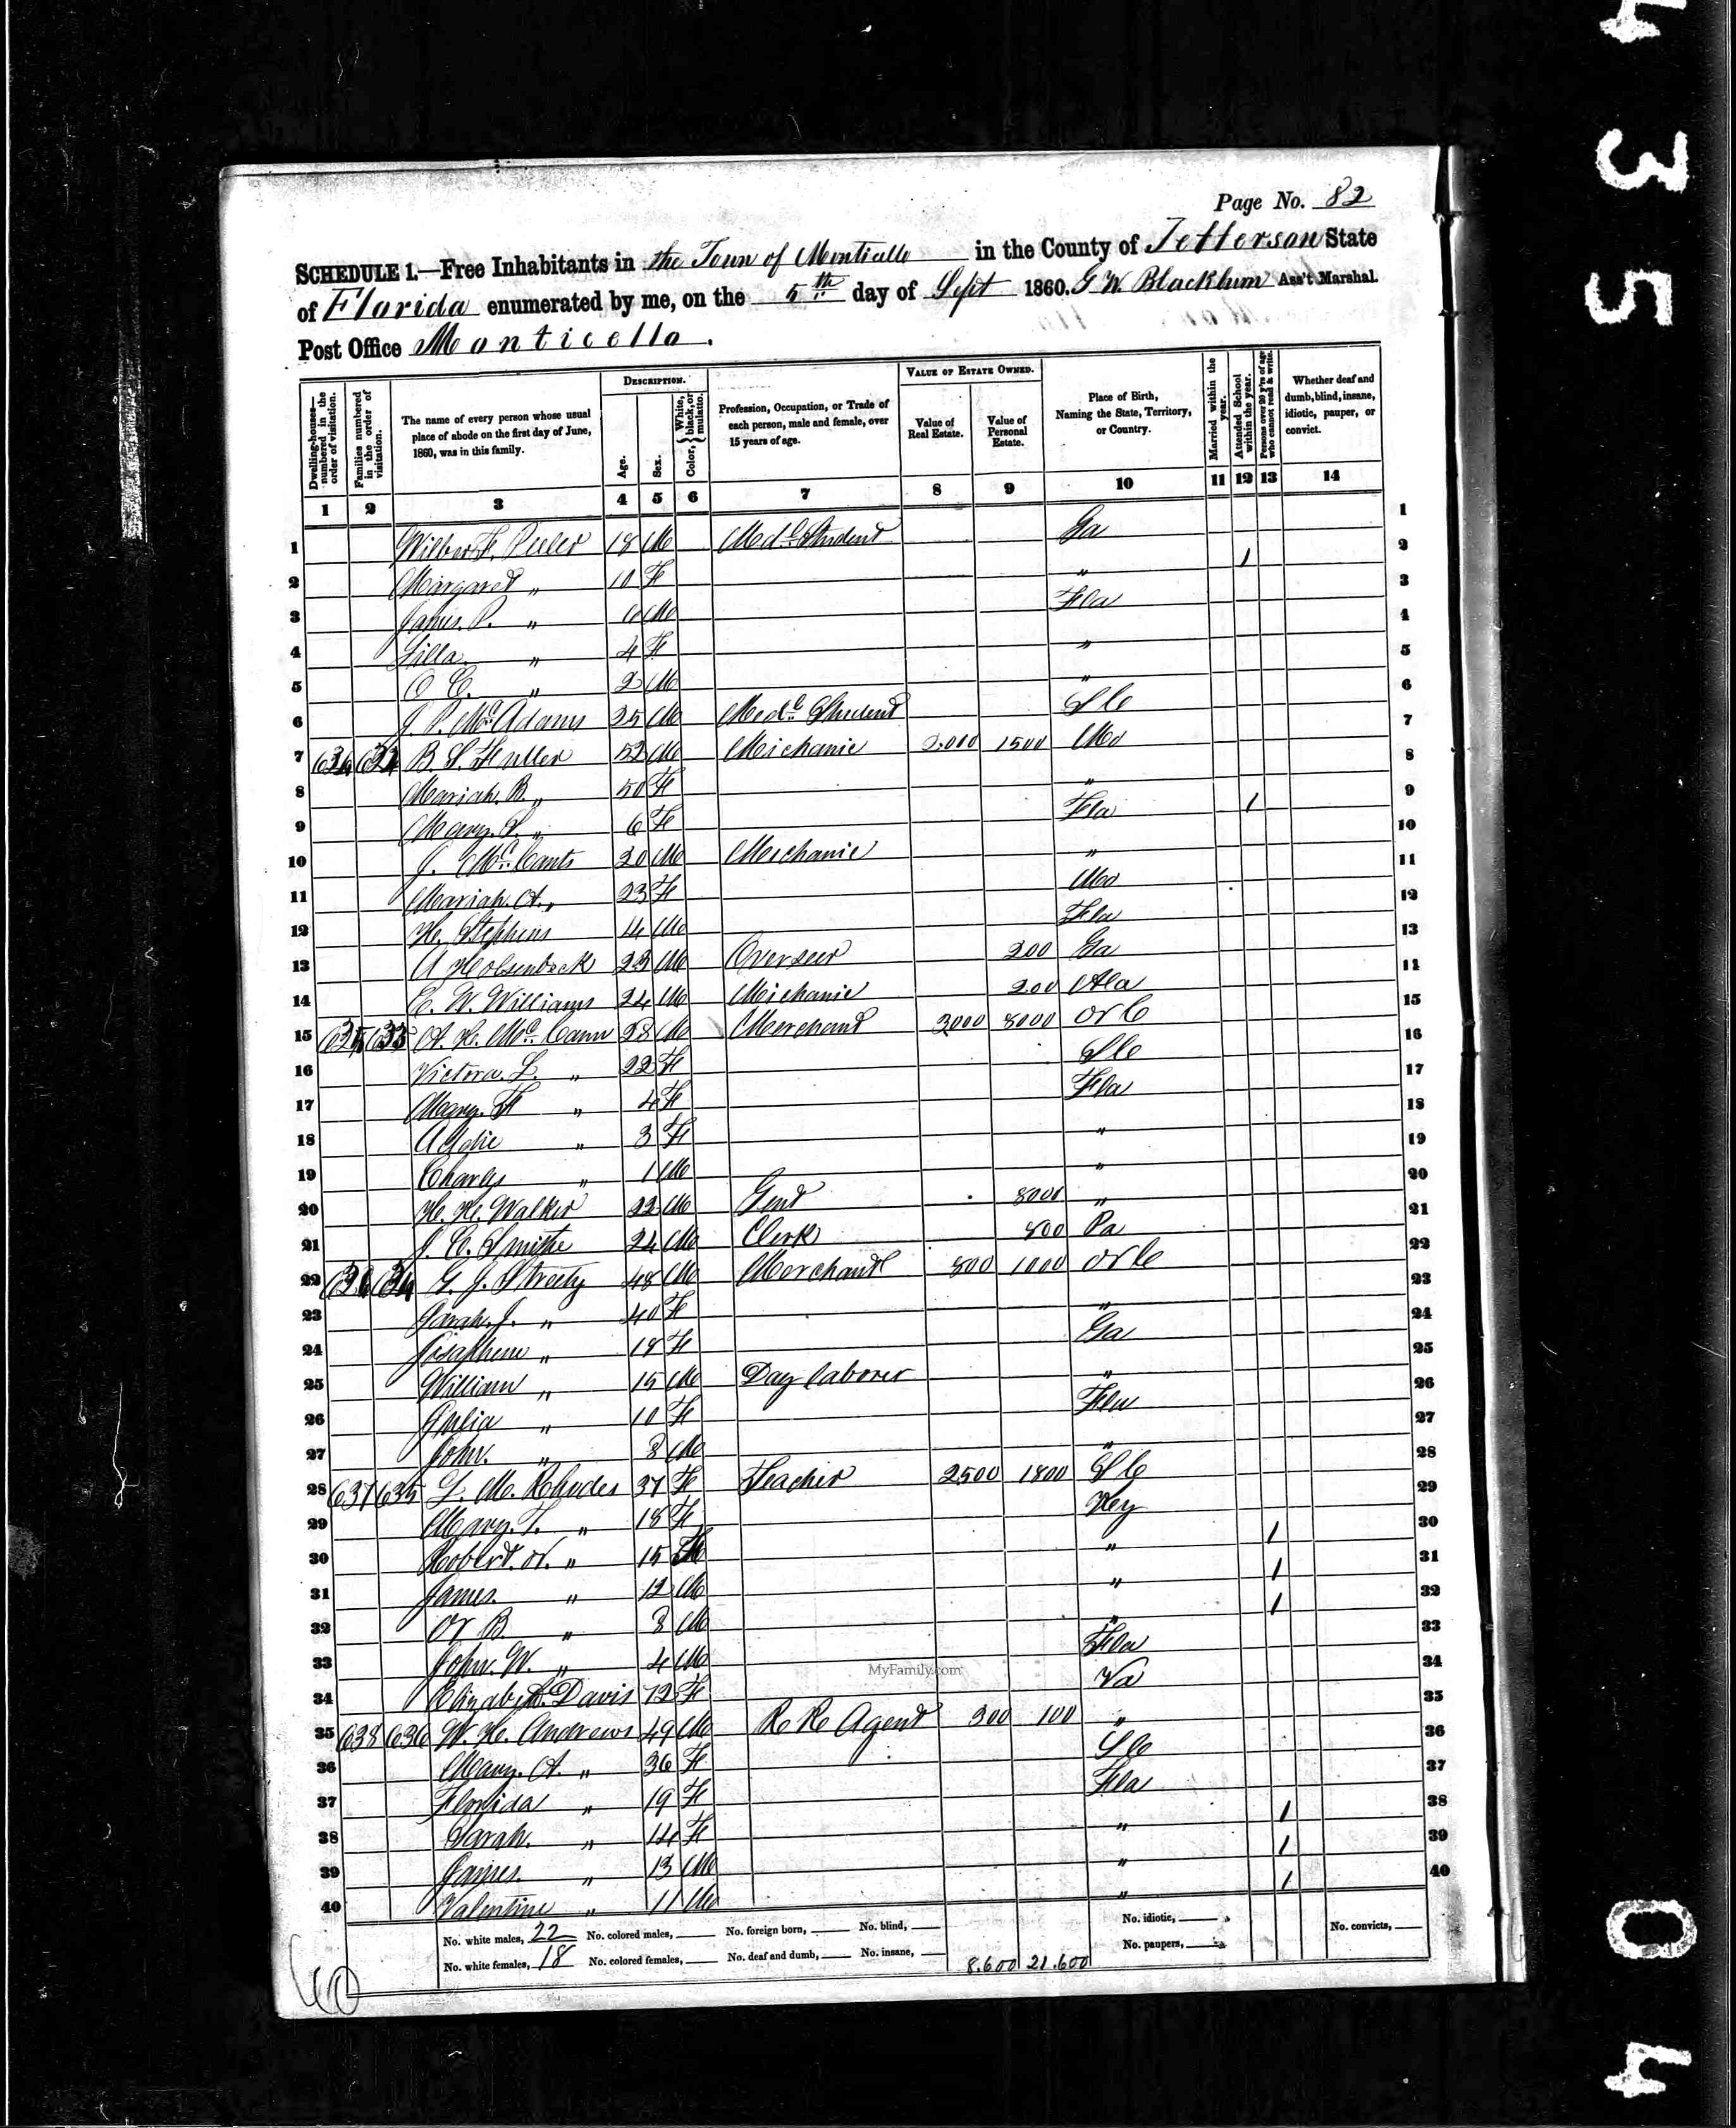 Page No. 82
SCHEDULE 1.—Free Inhabitants in the Town of Monticello in the County of Jefferson State
of Florida enumerated by me, on the 5th day of Sept 1860. G W Blackburn Ass't Marshal.
Post Office Monticello.
Dwelling-houses—numbered in the order of visitation. Families numbered in the order of visitation. The name of every person whose usual place of abode on the first day of June, 1860, was in this family. DESCRIPTION. Age. Sex. Color, White, black, or mulatto. Profession, Occupation, or Trade of each person, male and female, over 15 years of age. VALUE OF ESTATE OWNED. Value of Real Estate. Value of Personal Estate. Place of Birth, Naming the State, Territory, or Country. Married within the year. Attended School within the year. Persons over 20 y'rs of age who cannot read & write. Whether deaf and dumb, blind, insane, idiotic, pauper, or convict.
1 2 3 4 5 6 7 8 9 10 11 12 13 14
1 18 M Medc Student Ga 1
2 Margaret " 10 F " 1 2
3 James P. " 6 M Fla 3
4 " 4 F " 4
5 O C. " 2 M " 5
6 J. P. McAdams 25 M Medc Student S C 6
7 B. S. Fuller 52 M Michanic 2.000 1500 Md 7
8 Mariah. B. " 50 F " 8
9 Mary. S. " 6 F Fla 1 9
10 J. McCants 20 M Mechanic " 10
11 Mariah. A. " 23 F Md 11
12 H. Stephens 14 M Fla 12
13 A Holsenback 23 M Overseer 200 Ga 13
14 C. W. Williams 24 M Michanic 200 Ala 14
15 635 633 A. H. McCann 28 M Merchant 3000 8000 N C 15
16 Victora. L. " 22 F S C 16
17 Mary. F " 4 F Fla 17
18 Addie " 3 F " 18
19 Charles " 1 M " 19
20 H. H. Walker 22 M Gent 8000 " 20
21 J. C. Smithe 24 M Clerk 800 Pa 21
22 636 634 G. J. Streety 48 M Merchant 800 1000 N C 22
23 Sarah. J. " 40 F " 23
24 " 18 F Ga 24
25 William " 15 M Day laborer " 25
26 Julia " 10 F Fla 26
27 John. " 8 M " 27
28 637 635 L. M. Rhodes 37 F Teacher 2500 1800 S C 28
29 Mary. T. " 18 F Key 29
30 Robert. A. " 15 M " 1 30
31 James. " 12 M " 1 31
32 N B. " 8 M " 1 32
33 John. W. " 4 M Fla 33
34 Elizabeth. Davis 72 F Va 34
35 638 636 W. H. Andrews 49 M R R Agent 300 100 " 35
36 Mary. A. " 36 F S C 36
37 Florida " 19 F Fla 37
38 Sarah. " 14 F " 1 38
39 James. " 13 M " 1 39
40 Valentine " 11 M " 1 40
No. white males, 22 No. colored males, No. foreign born, No. blind, No. idiotic, No. convicts,
No. white females, 18 No. colored females, No. deaf and dumb, No. insane, 8.600 21.600 No. paupers,
40
MyFamily.com
4 3 5
0 4